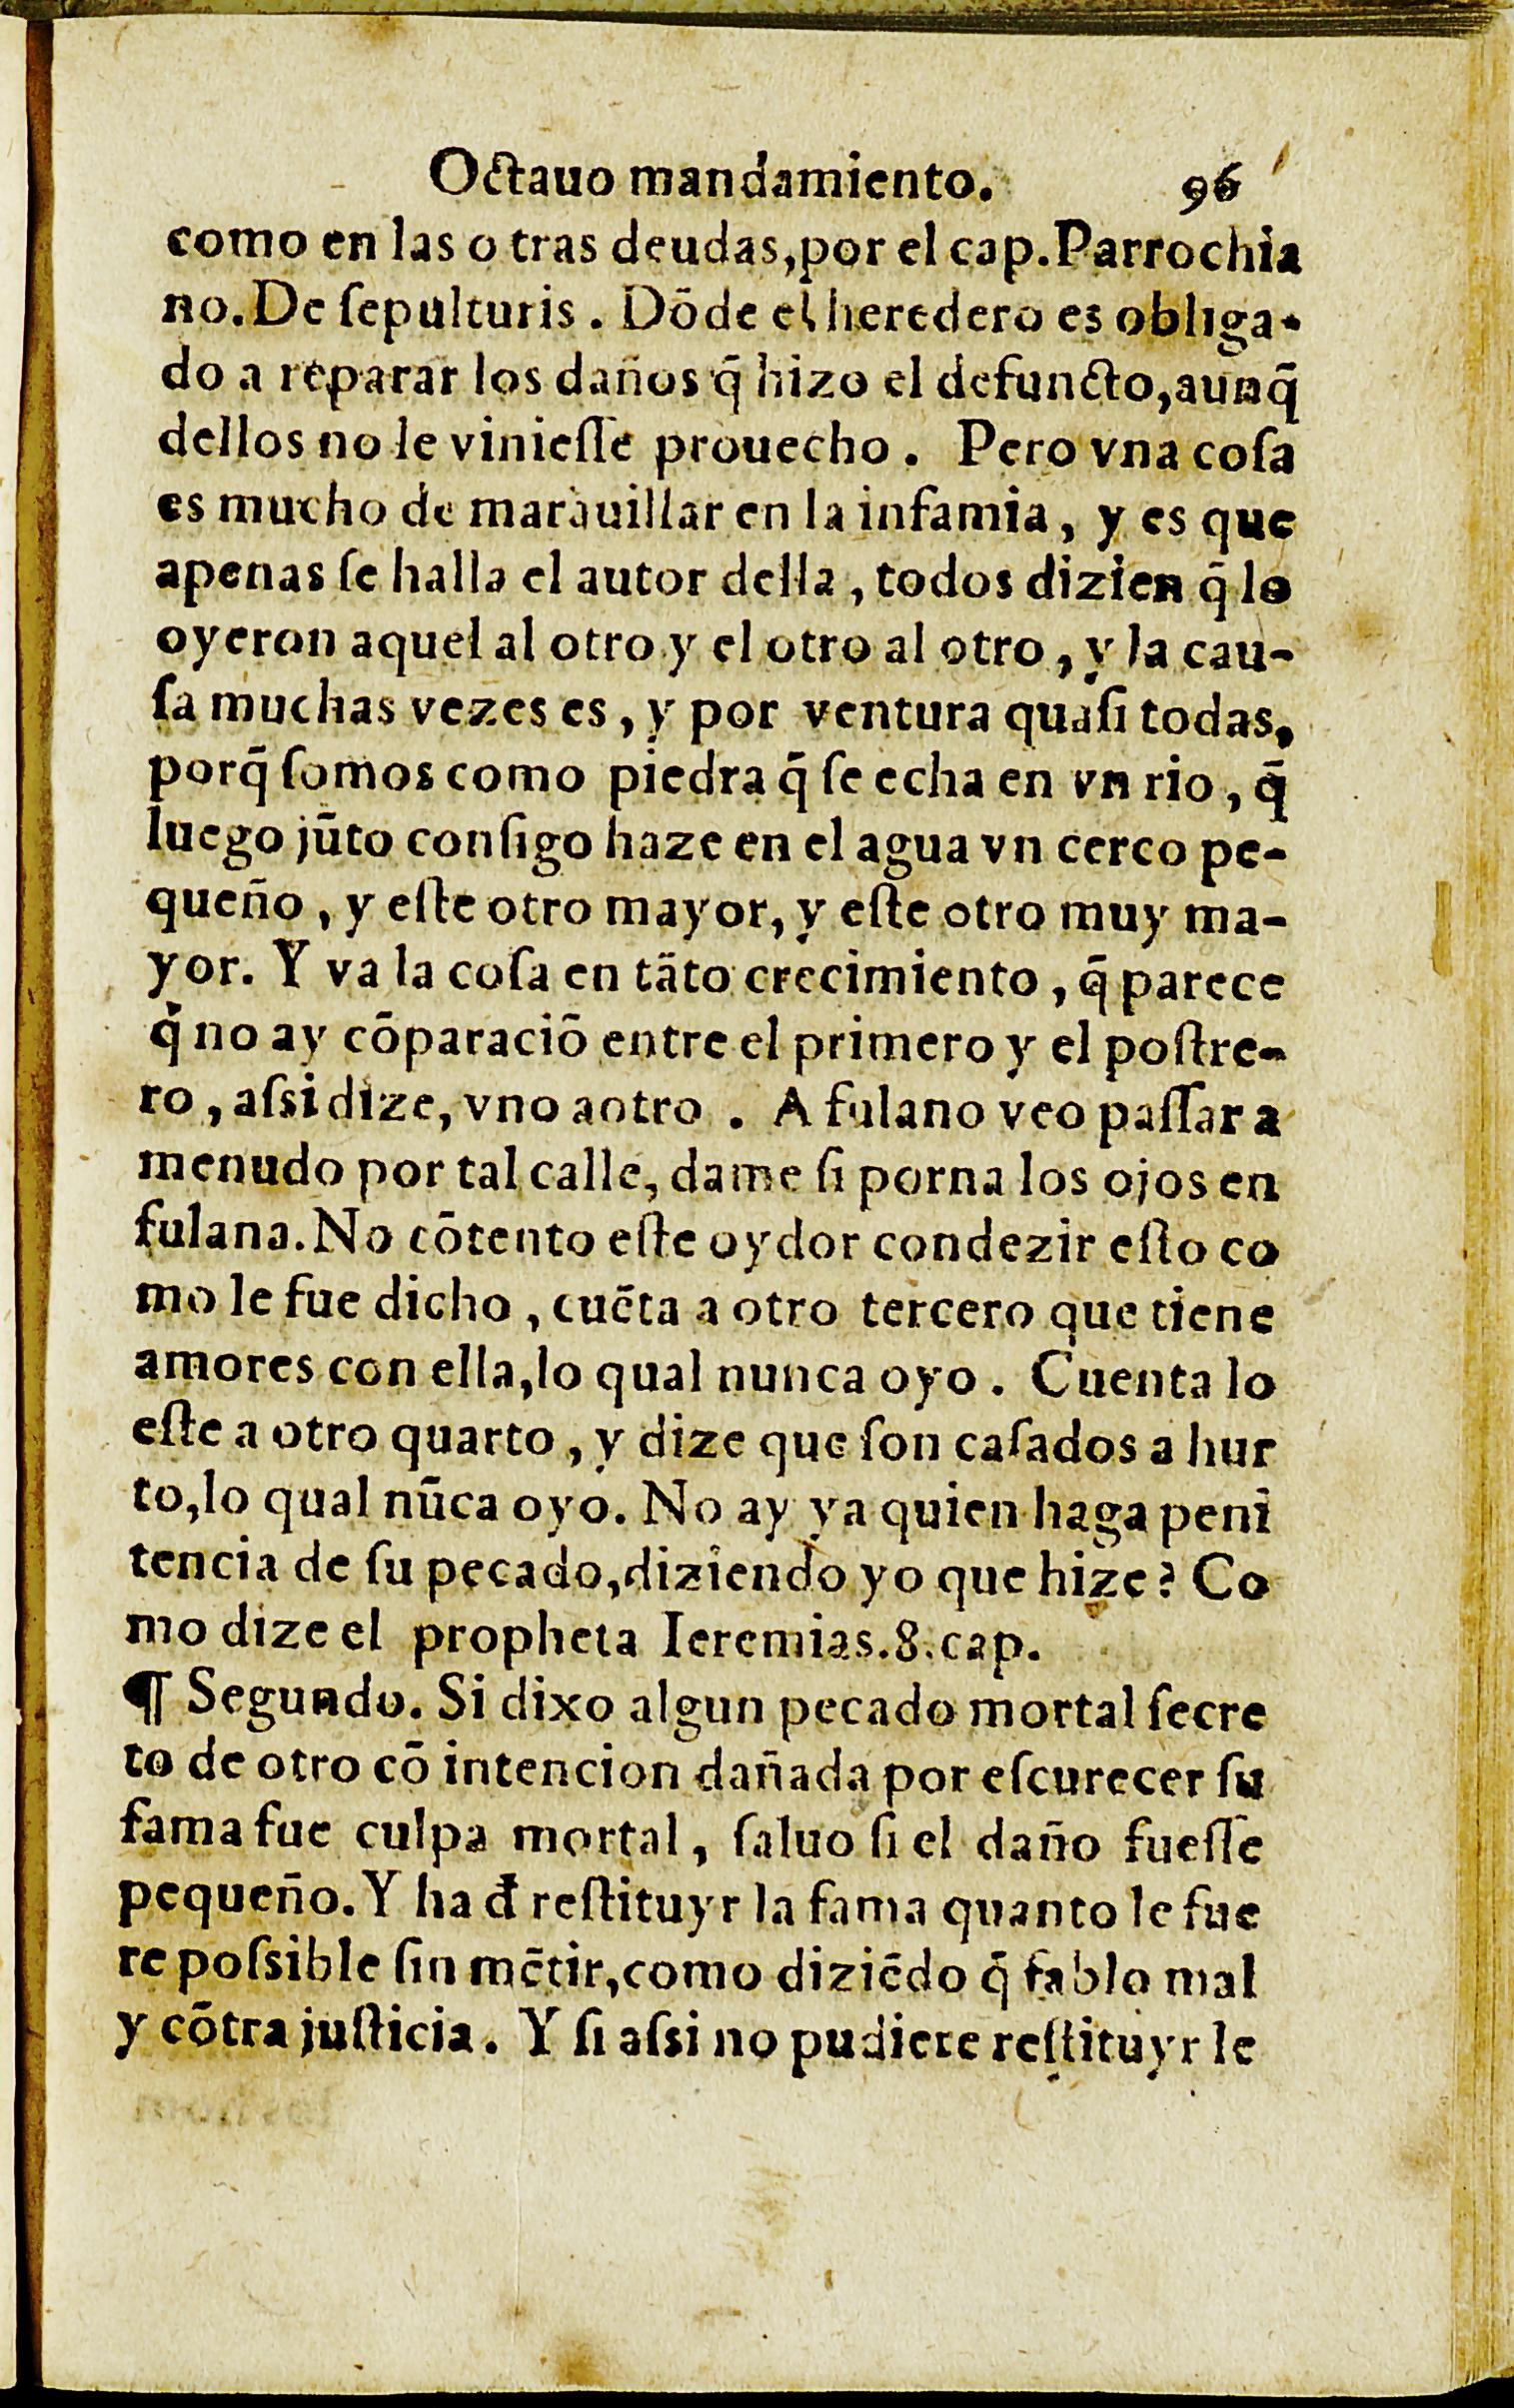 Octauo mandamiento. 96
como en las o tras deudas,por el cap.Parrochia
no.De ſepulturis. Dōde el heredero es obliga-
do a reparar los daños q̄ hizo el defuncto,aunq̄
dellos no le vinieſſe prouecho. Pero vna coſa
es mucho de marauillar en la infamia, y es que
apenas ſe halla el autor della, todos dizien q̄ lo
oyeron aquel al otro y el otro al otro, y la cau-
ſa muchas vezes es, y por ventura quaſi todas,
porq̄ ſomos como piedra q̄ ſe echa en vn rio, q̄
luego jūto conſigo haze en el agua vn cerco pe-
queño, y eſte otro mayor, y eſte otro muy ma-
yor. Y va la coſa en tāto crecimiento, q̄ parece
q̄ no ay cōparaciō entre el primero y el poſtre-
ro, aſsi dize, vno aotro. A fulano veo paſſar a
menudo por tal calle, dame ſi porna los ojos en
fulana.No cōtento eſte oydor condezir eſto co
mo le fue dicho, cuēta a otro tercero que tiene
amores con ella,lo qual nunca oyo. Cuenta lo
eſte a otro quarto, y dize que ſon caſados a hur
to,lo qual nūca oyo. No ay ya quien haga peni
tencia de ſu pecado,diziendo yo que hize? Co
mo dize el propheta Ieremias.8.cap.
¶ Segundo. Si dixo algun pecado mortal ſecre
to de otro cō intencion dañada por eſcurecer ſu
fama fue culpa mortal, ſaluo ſi el daño fueſſe
pequeño. Y ha đ reſtituyr la fama quanto le fue
re poſsible ſin mētir,como diziēdo q̄ fablo mal
y cōtra juſticia. Y ſi aſsi no pudiere reſtituyr le